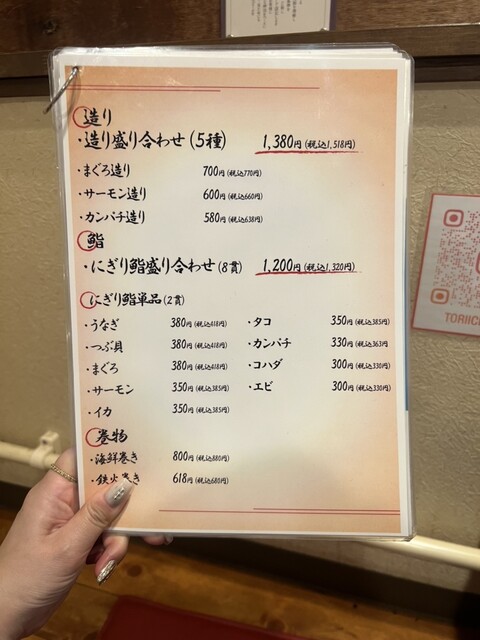 造り
・造り盛り合わせ(5種) 1,380円(税込1,518円)
・まぐろ造り 700円(税込770円)
・サーモン造り 600円(税込660円)
・カンパチ造り 580円(税込638円)
鮨
・にぎり鮨盛り合わせ(8貫) 1,200円(税込1,320円)
にぎり鮨単品(2貫)
・うなぎ 380円(税込418円) ・タコ 350円(税込385円)
・つぶ貝 380円(税込418円) ・カンパチ 330円(税込363円
・まぐろ 380円(税込418円) ・コハダ 300円(税込330円)
・サーモン 350円(税込385円) ・エビ 300円(税込330円)
・イカ 350円(税込385円)
巻物
・海鮮巻き 800円(税込880円)
・鉄火巻き 618円(税込680円)
TORIIC